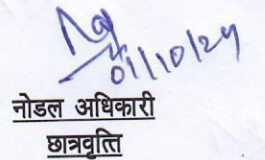 01/10/24
नोडल अधिकारी
छात्रवृत्ति